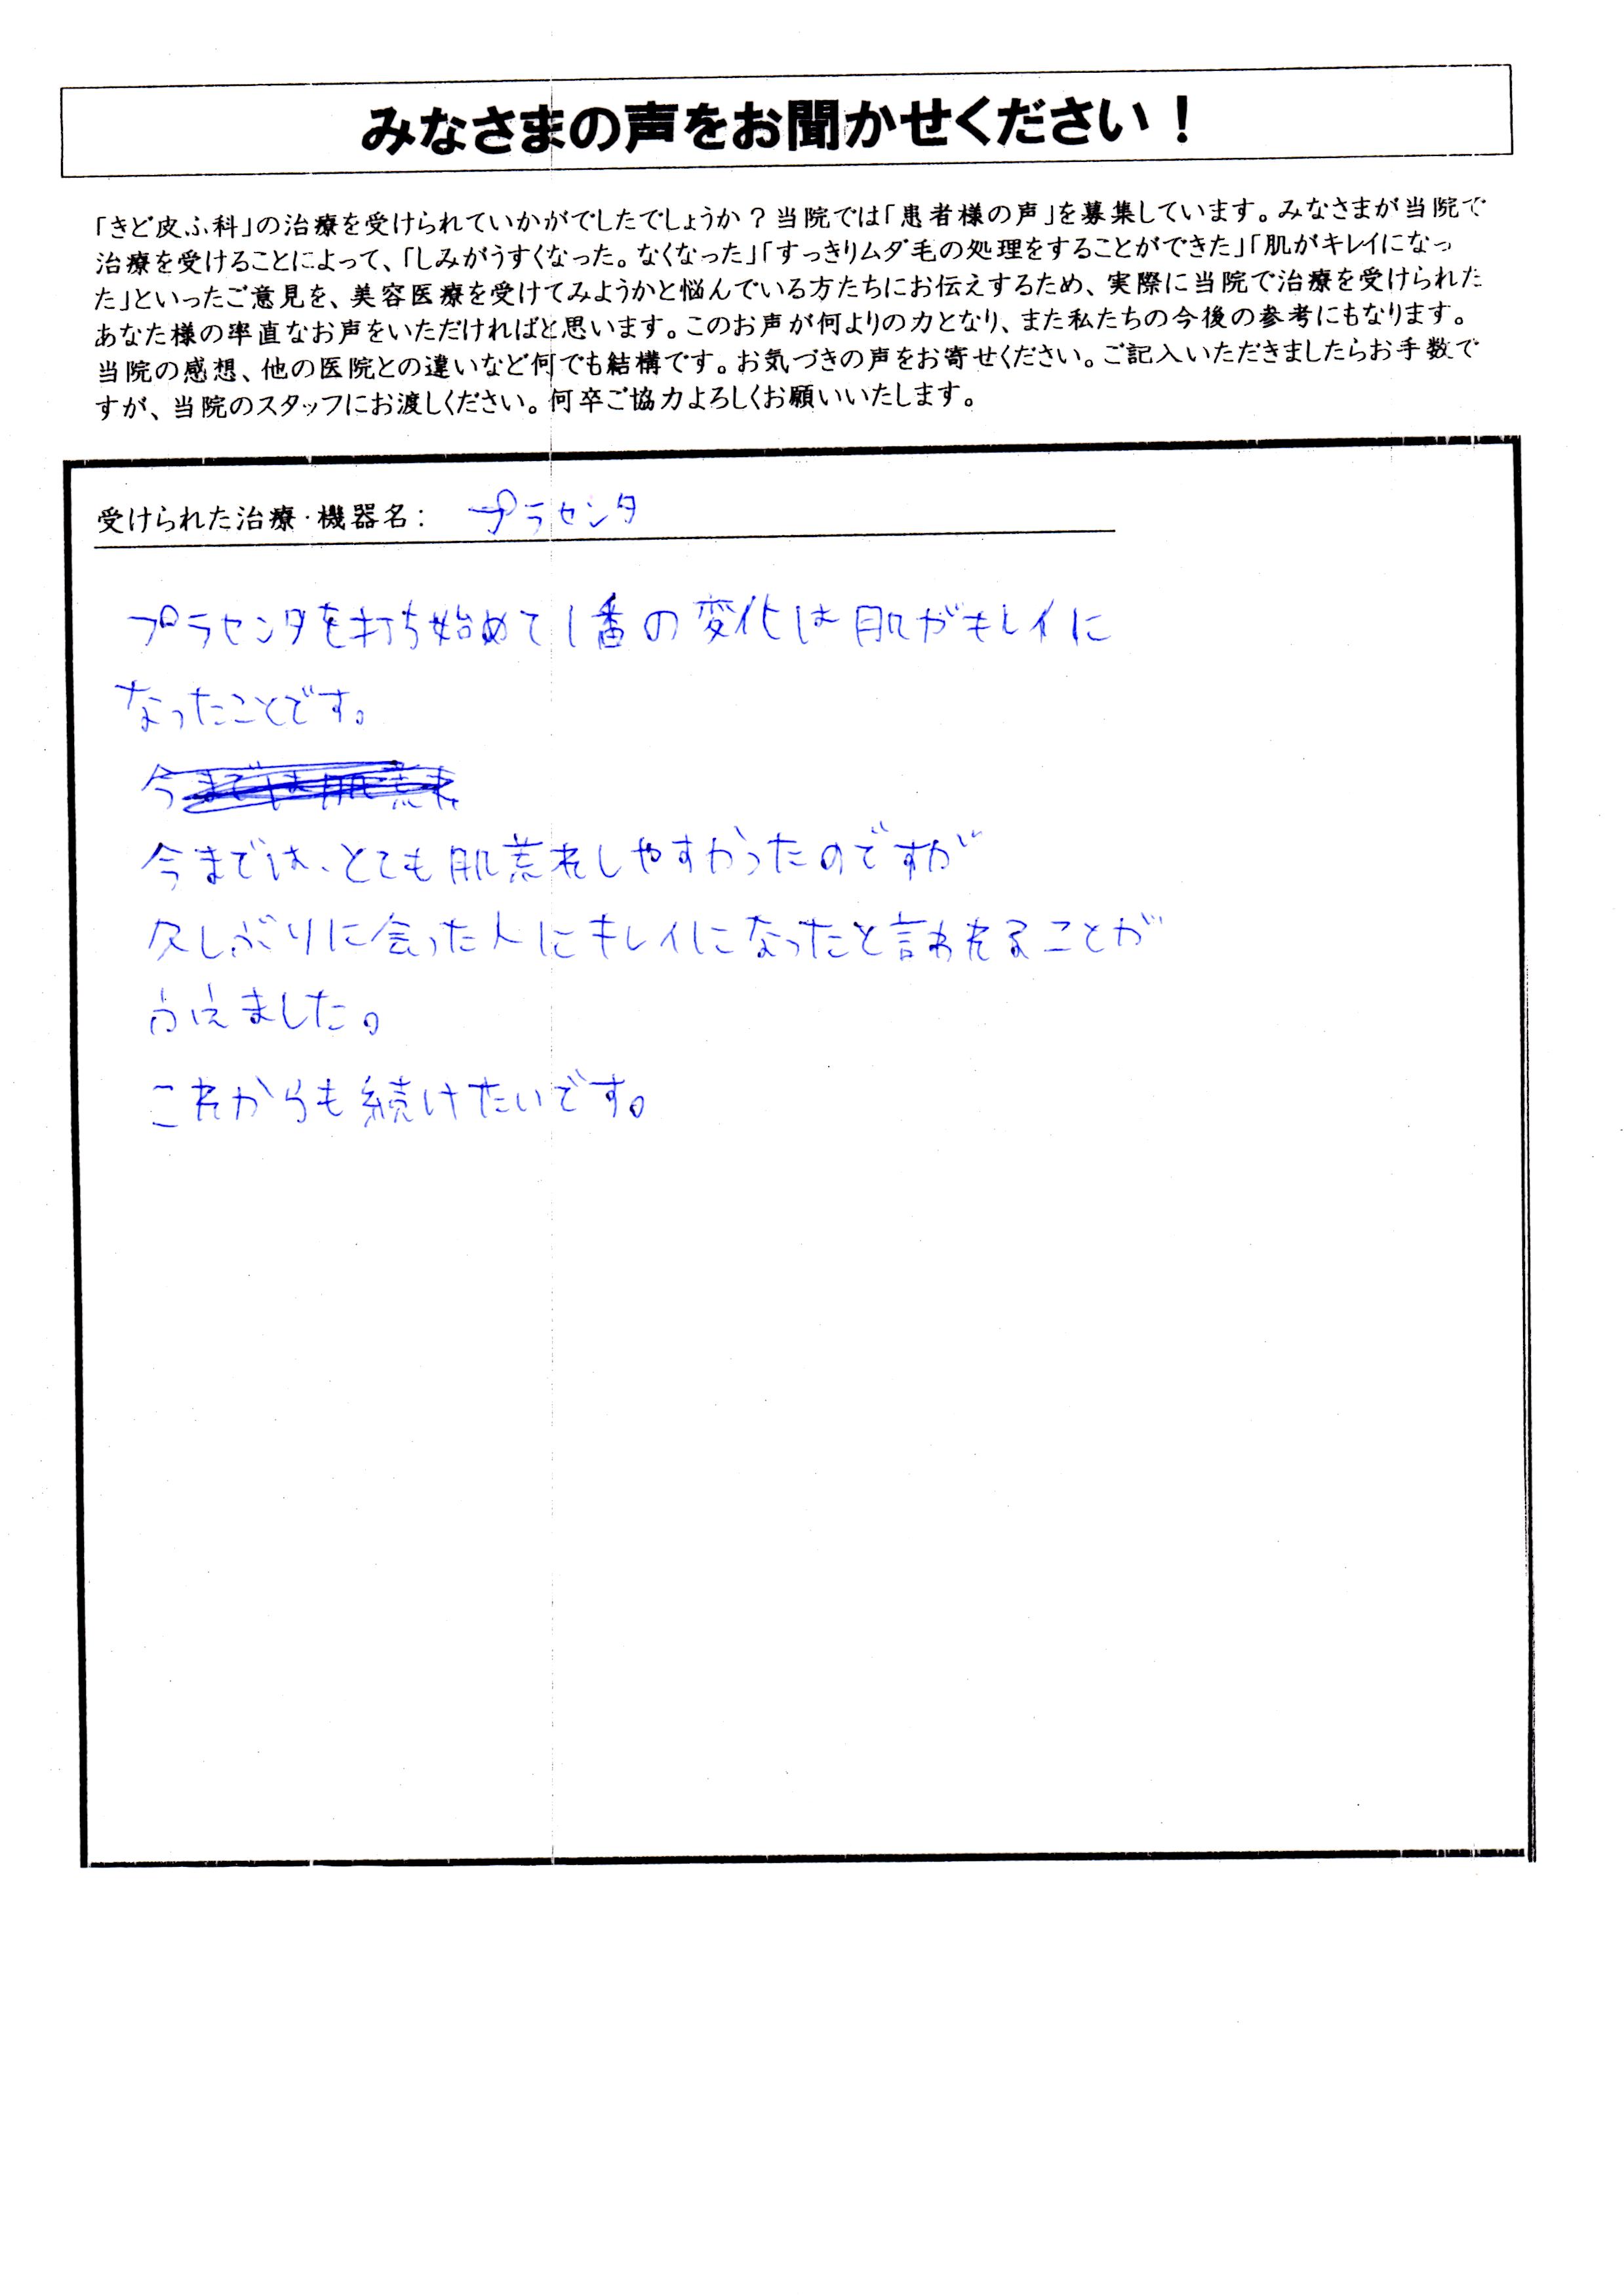 みなさまの声をお聞かせください！
「きど皮ふ科」の治療を受けられていかがでしたでしょうか？当院では「患者様の声」を募集しています。みなさまが当院で
治療を受けることによって、「しみがうすくなった。なくなった」「すっきりムダ毛の処理をすることができた」「肌がキレイになっ
た」といったご意見を、美容医療を受けてみようかと悩んでいる方たちにお伝えするため、実際に当院で治療を受けられた
あなた様の率直なお声をいただければと思います。このお声が何よりの力となり、また私たちの今後の参考にもなります。
当院の感想、他の医院との違いなど何でも結構です。お気づきの声をお寄せください。ご記入いただきましたらお手数で
すが、当院のスタッフにお渡しください。何卒ご協力よろしくお願いいたします。
受けられた治療・機器名： プラセンタ
プラセンタを打ち始めて1番の変化は肌がキレイに
なったことです。
今までは肌荒れ
今までは、とても肌荒れしやすかったのですが
久しぶりに会った人にキレイになったと言われることが
ふえました。
これからも続けたいです。